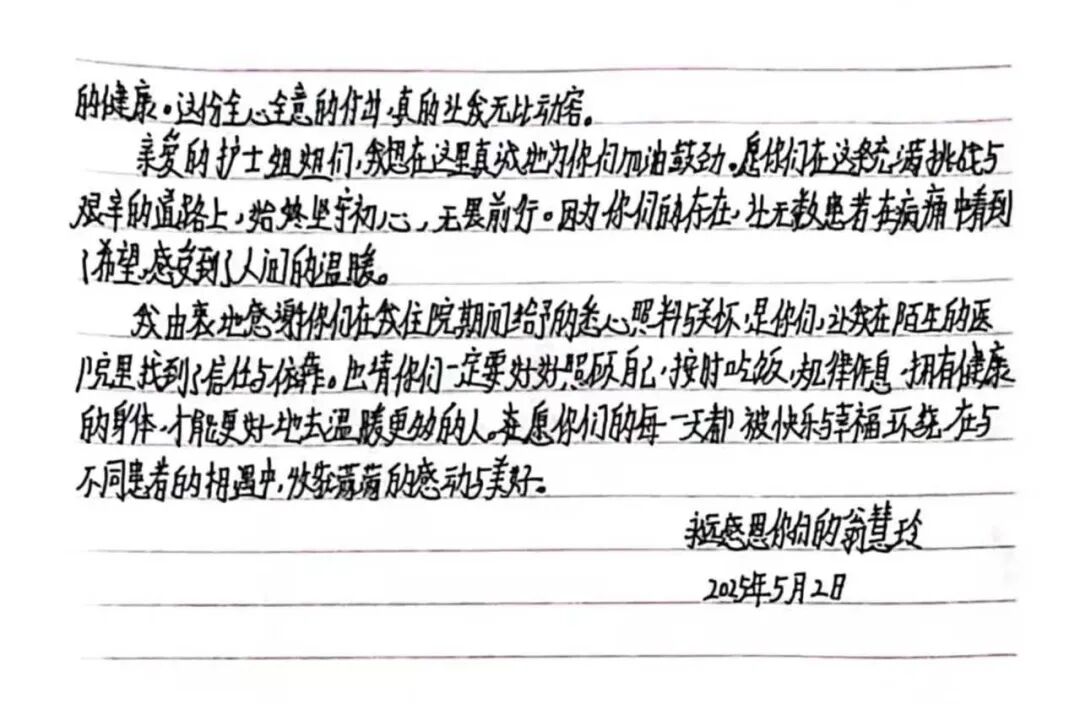 的健康。这份全心全意的付出,真的让我无比动容。
亲爱的护士姐姐们,我想在这里真诚地为你们加油鼓劲。愿你们在这条充满挑战与
艰辛的道路上,始终坚守初心,无畏前行。因为你们的存在,让无数患者在病痛中看到
了希望,感受到了人间的温暖。
我由衷地感谢你们在我住院期间给予的悉心照料与关怀,是你们,让我在陌生的医
院里找到了信任与依靠。也请你们一定要好好照顾自己,按时吃饭,规律作息,拥有健康
的身体,才能更好地去温暖更多的人。愿你们的每一天都被快乐与幸福环绕,在与
不同患者的相遇中,收获满满的感动与美好。
永远感恩你们的翁慧玲
2025年5月2日